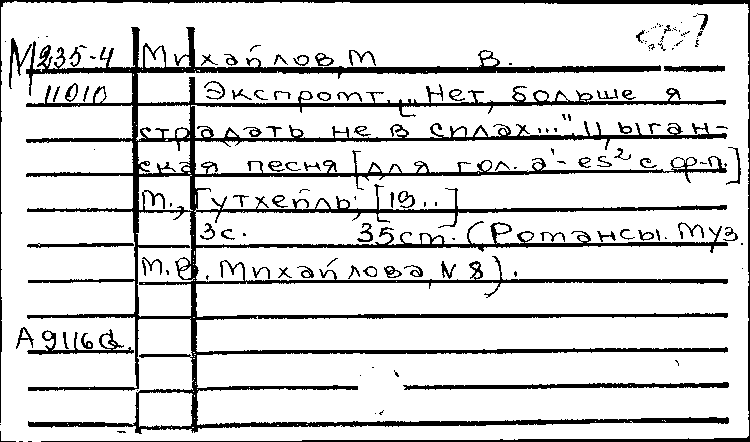 М235-4 Михайлов, М В.
11010 Экспромт. ["Нет, больше я
страдать не в силах..." Цыган-
ская песня [для гол. a¹-es² с ф-п.]
М., Гутхейль; [19..]
3с. 35ст. (Романсы. Муз.
М.В. Михайлова, N 8).